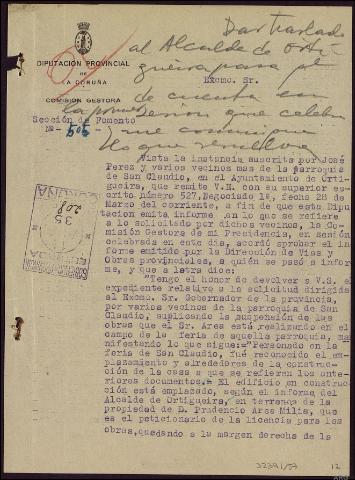 Dar traslado
al Alcalde de Orti-
gueira para q
DIPUTACIÓN PROVINCIAL
DE
LA CORUÑA
Excmo. Sr.
de cuenta en
COMISIÓN GESTORA
la primera
Sesión que celebre
Sección de Fomento
Nº- 505
y me comunique
lo que resuelva
Vista la instancia suscrita por José
Perez y varios vecinos mas de la parroquia
de San Claudio, en el Ayuntamiento de Ortigueira, que remite V.E. con su superior es-
crito número 527, Negociado 1º, fecha 28 de
Marzo del corriente, a fin de que esta Dipu
tacion emita informe en lo que se refiere
a lo solicitado por dichos vecinos, la Co-
misión Gestora de mi Presidencia, en sesión
celebrada en este día, acordó aprobar el in
forme emitido por la Dirección de Vias y
Obras provinciales, a quién se pasó a infor
me, y que a letra dice:
"Tengo el honor de devolver a V.S. el
expediente relativo a la solicitud dirigida
al Excmo. Sr. Gobernador de la provincia,
por varios vecinos de la parroquia de San
Claudio, suplicando la suspensión de las
obras que el Sr. Ares está realizando en el
campo de la feria de aquella parroquia, ma-
nifestando lo que sigue:="Personado en la
feria de San Claudio, fué reconocido el em-
plazamiento y alrededores de la construc-
ción de la casa a que se refieren los ante-
riores documentos.= El edificio en construc-
ción está emplazado, según el informe del
Alcalde de Ortigueira, en terrenos de la
propiedad de D. Prudencio Ares Milia, que
es el peticionario de la licencia para las
obras, quedando a la margen derecha de la
32391/57
12